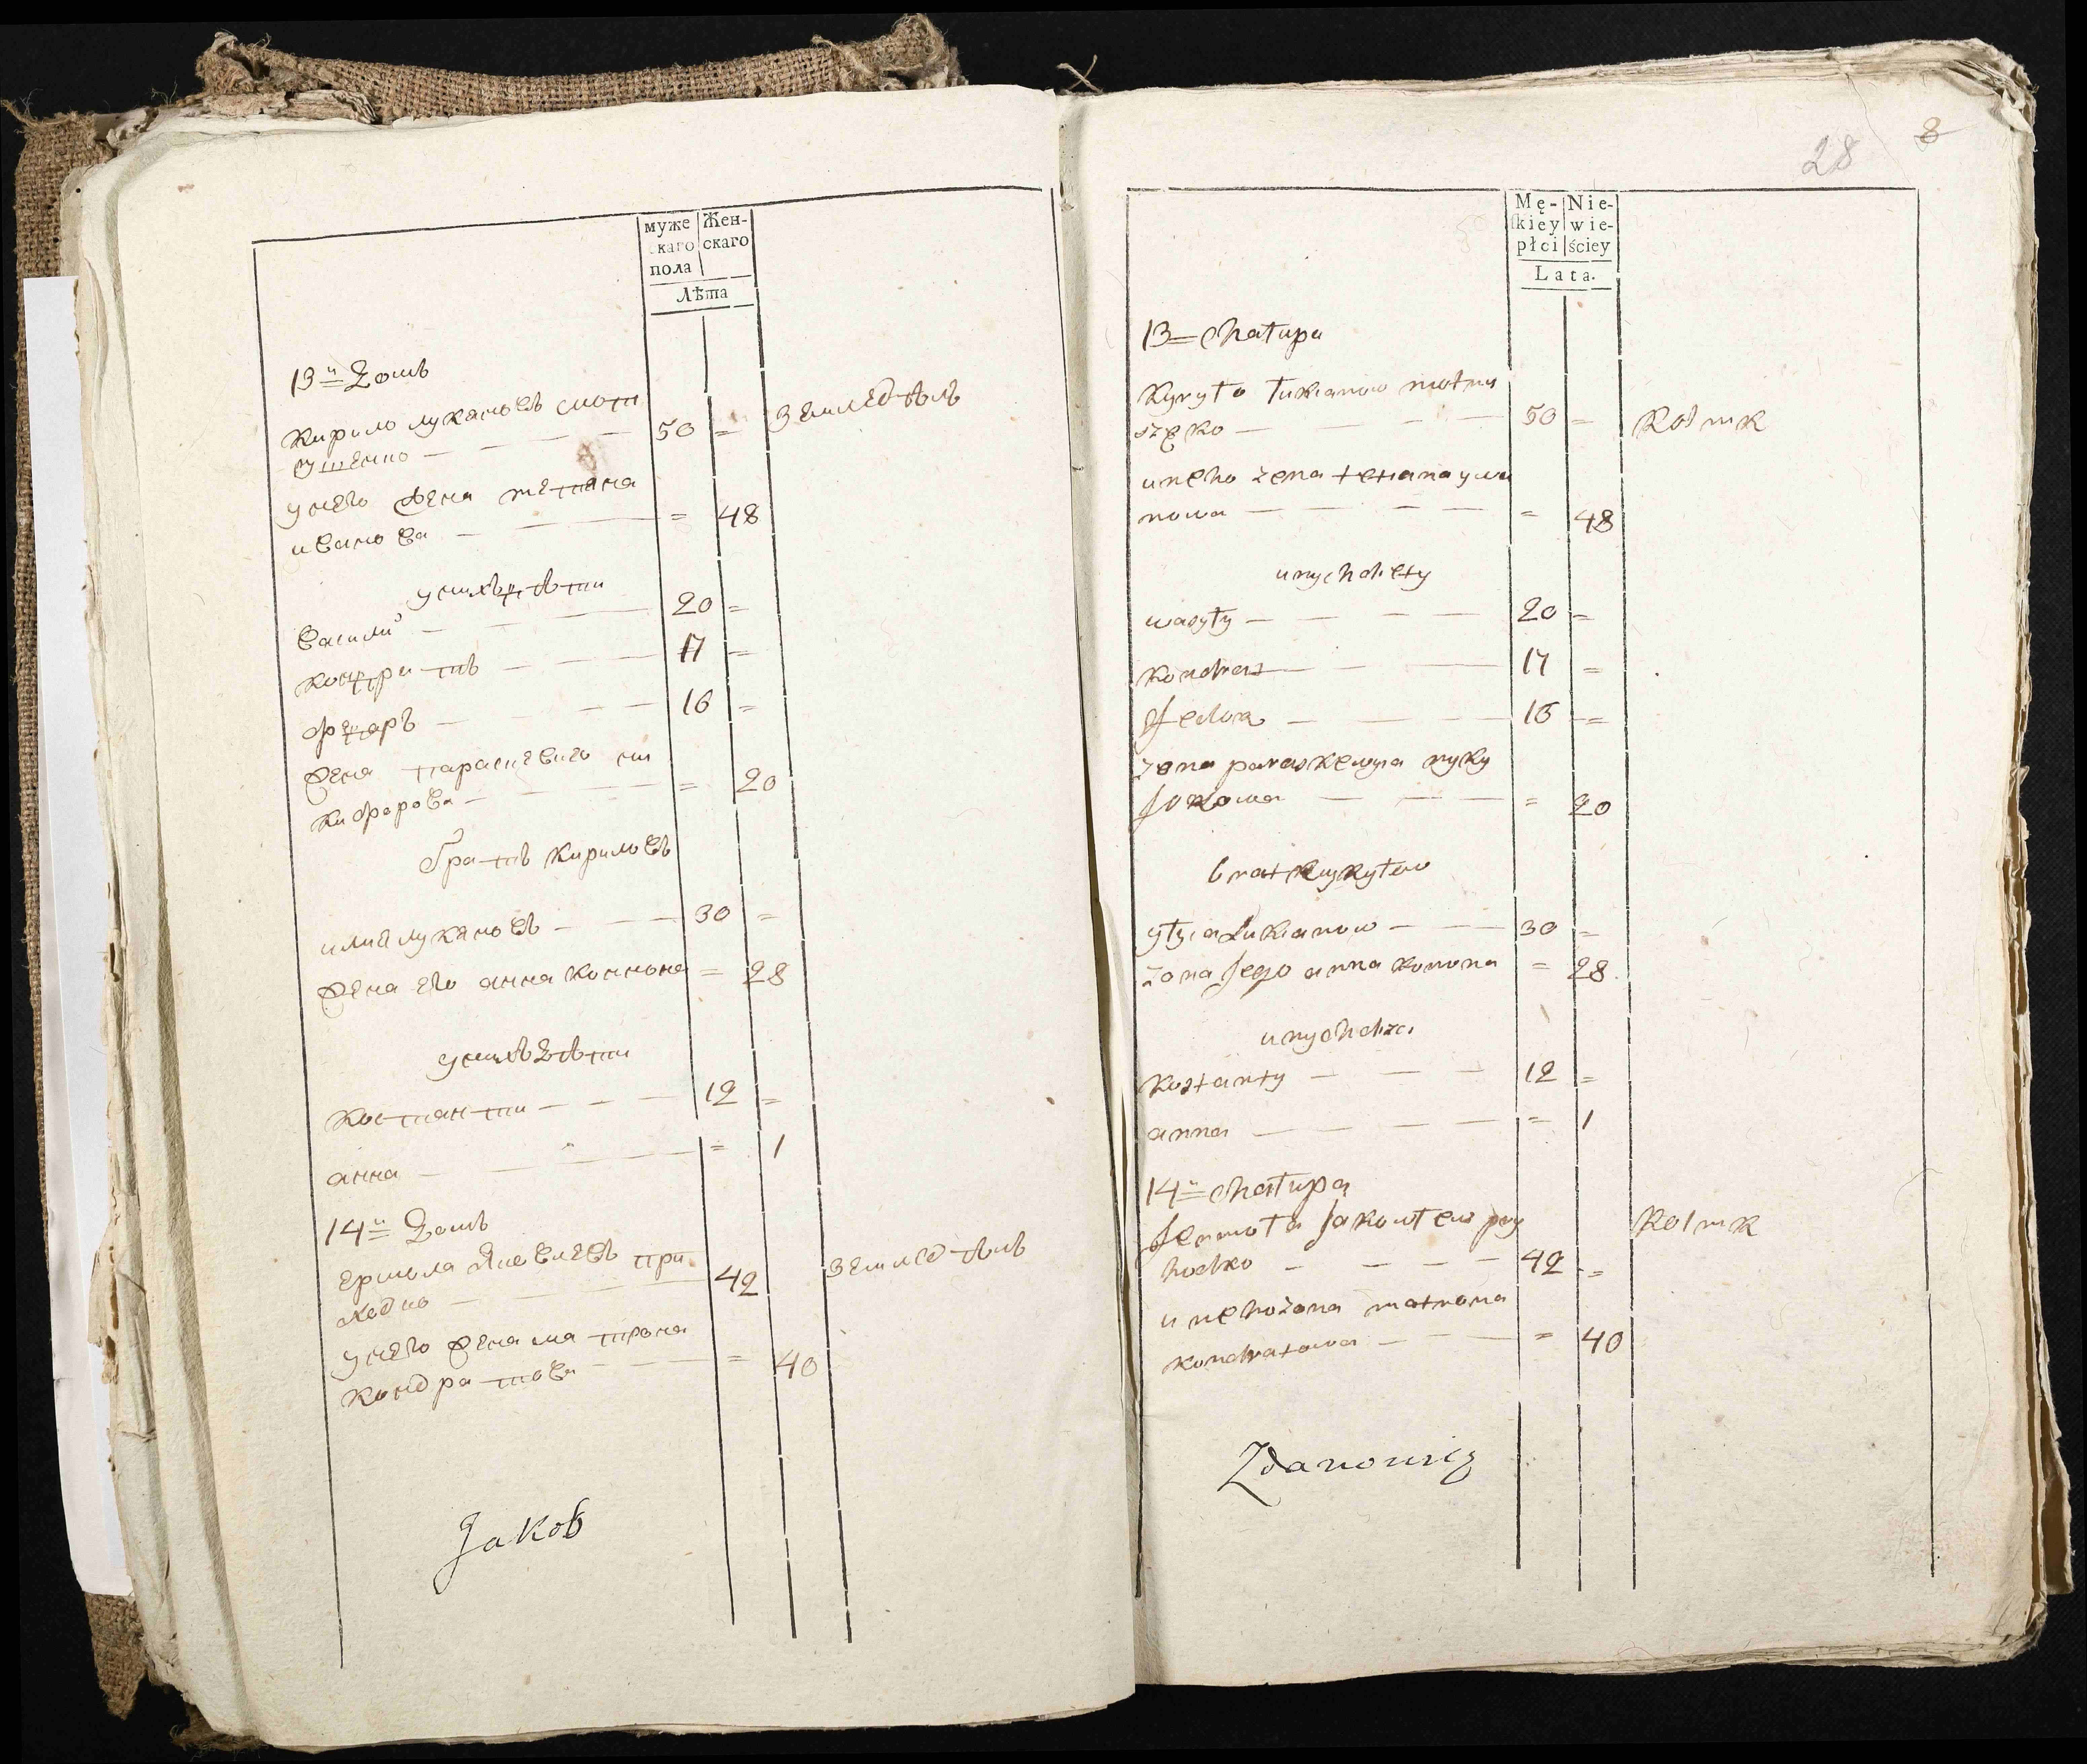 муже
скаго
пола
Жен-
скаго
Лѣта
13й Домъ
Кирило лукановъ мотн
ушенко — 50 = землєдѣлъ
унего жена тетиана
иванова — = 48
унихъ дѣти
Василий — 20 =
кондратъ — 17 =
федаръ — 16 =
жена параскевию ни
кифорова — = 20
братъ кириловъ
илия лукановъ — 30 =
жена его анна конона = 28
унихъ дѣти
Костанти — 12 =
анна — = 1
14й Домъ
ермола яковлевъ при
ходко — 42 землєдѣлъ
унего жена матрона
кондратова — = 40
Jakob
28 8
Mę-
skiey
płci
Nie-
wie-
ściey
Lata.
13= Chałupa
Kyryło łukianow motnu
szęko — 50 = Rolnik
uneho żena tetianaywa
nowa — = 48
unych diety
wasyły — 20 =
kondrat — 17 =
fedor — 16 =
żona paraskewyia nyky
forowa — = 20
brat kyryłow
yłyia Łukianow — 30 =
żona Jego anna konona = 28
unych dzi
Kostanty — 12 =
anna — = 1
14= Chałupa
Jermoła Jakowlew pry Rolnik
hodko — 42 =
u neho żona matrona
kondratowa — = 40
Zdanowicz